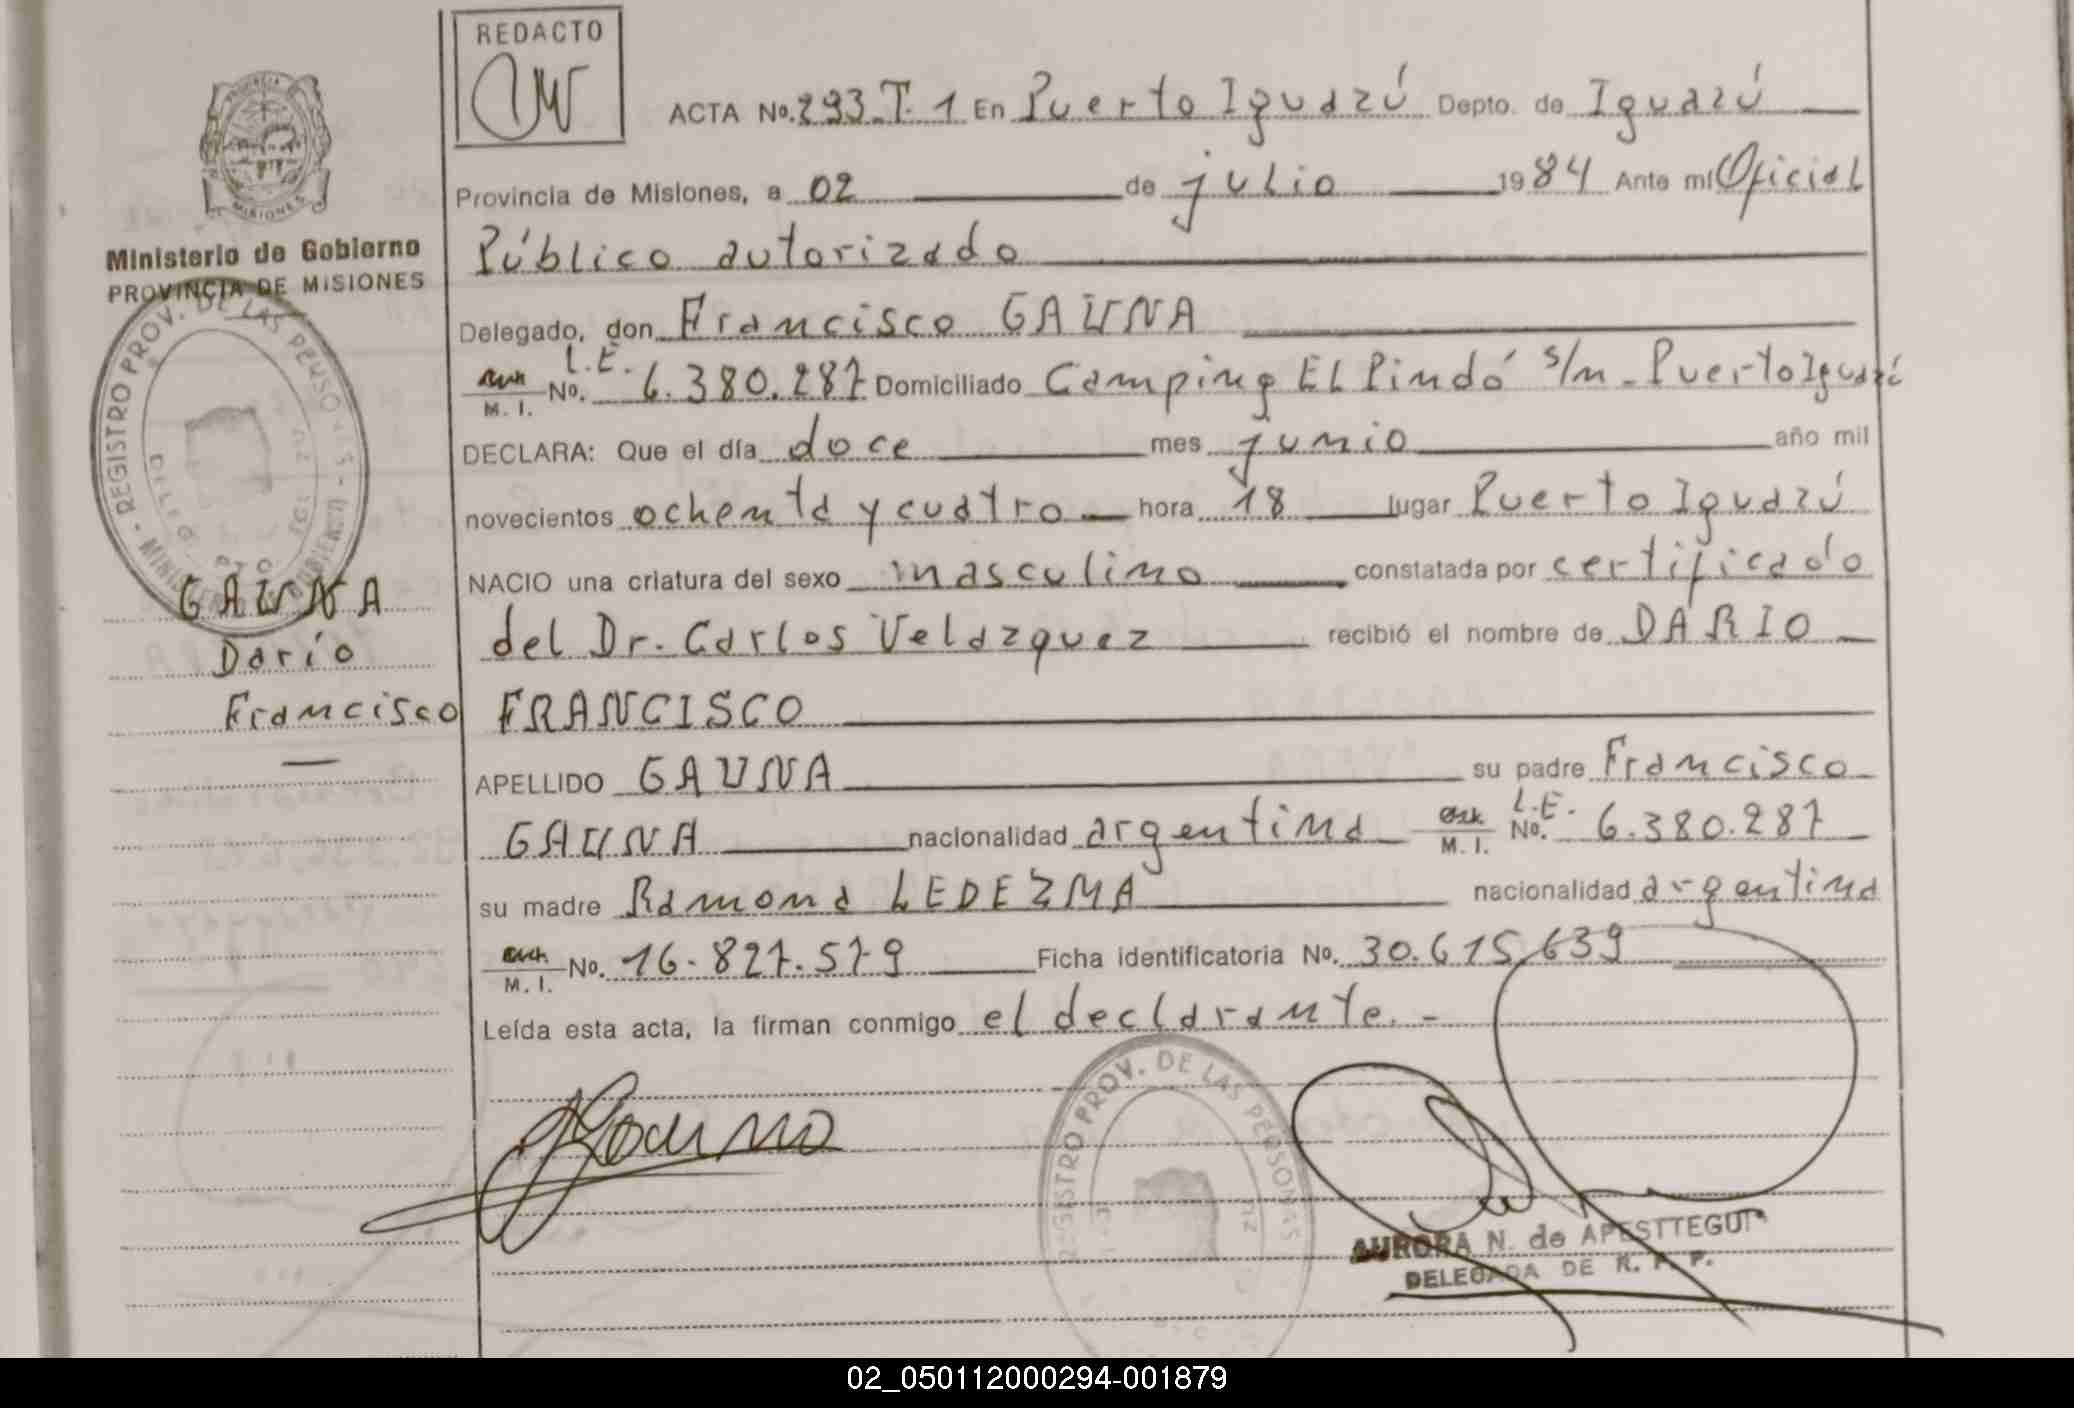 REDACTO
ACTA No. 293 T. 1 En Puerto Iguazú Depto. de Iguazú
Provincia de Misiones, a 02 de julio 1984 Ante mí Oficial
Público autorizado
Delegado, don Francisco GAUNA
M. I. No. L.E. 6.380.287 Domiciliado Camping El Pindó s/n - Puerto Iguazú
DECLARA: Que el día doce mes junio año mil
novecientos ochenta y cuatro hora 18 lugar Puerto Iguazú
NACIO una criatura del sexo masculino constatada por certificado
del Dr. Carlos Velazquez recibió el nombre de DARIO
FRANCISCO
APELLIDO GAUNA su padre Francisco
GAUNA nacionalidad argentina M. I. No. L.E. 6.380.287
su madre Ramona LEDEZMA nacionalidad argentina
M. I. No. 16.827.579 Ficha identificatoria No. 30.615.639
Leída esta acta, la firman conmigo el declarante. -
AURORA N. de APESTTEGUI
DELEGADA DE R. P. P.
MISIONES
Ministerio de Gobierno
PROVINCIA DE MISIONES
REGISTRO PROV. DE LAS PERSONAS
GAUNA
Darío
Francisco
REGISTRO PROV. DE LAS PERSONAS
02_050112000294-001879